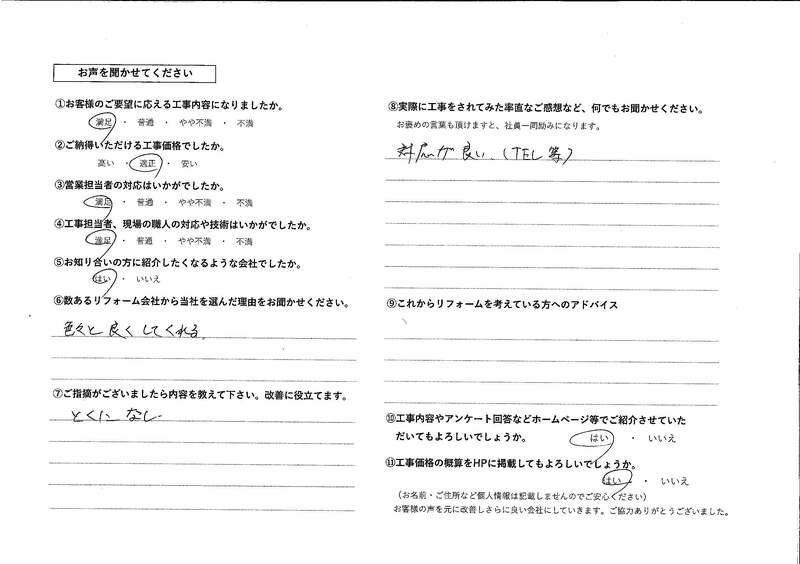 お声を聞かせてください
①お客様のご要望に応える工事内容になりましたか。
満足 ・ 普通 ・ やや不満 ・ 不満
②ご納得いただける工事価格でしたか。
高い ・ 適正 ・ 安い
③営業担当者の対応はいかがでしたか。
満足 ・ 普通 ・ やや不満 ・ 不満
④工事担当者、現場の職人の対応や技術はいかがでしたか。
満足 ・ 普通 ・ やや不満 ・ 不満
⑤お知り合いの方に紹介したくなるような会社でしたか。
はい ・ いいえ
⑥数あるリフォーム会社から当社を選んだ理由をお聞かせください。
色々と良くしてくれる。
⑦ご指摘がございましたら内容を教えて下さい。改善に役立てます。
とくになし
⑧実際に工事をされてみた率直なご感想など、何でもお聞かせください。
お褒めの言葉も頂けますと、社員一同励みになります。
対応が良い。(TEL等)
⑨これからリフォームを考えている方へのアドバイス
⑩工事内容やアンケート回答などホームページ等でご紹介させていた
だいてもよろしいでしょうか。 はい ・ いいえ
⑪工事価格の概算をHPに掲載してもよろしいでしょうか。
はい ・ いいえ
（お名前・ご住所など個人情報は記載しませんのでご安心ください）
お客様の声を元に改善しさらに良い会社にしていきます。ご協力ありがとうございました。